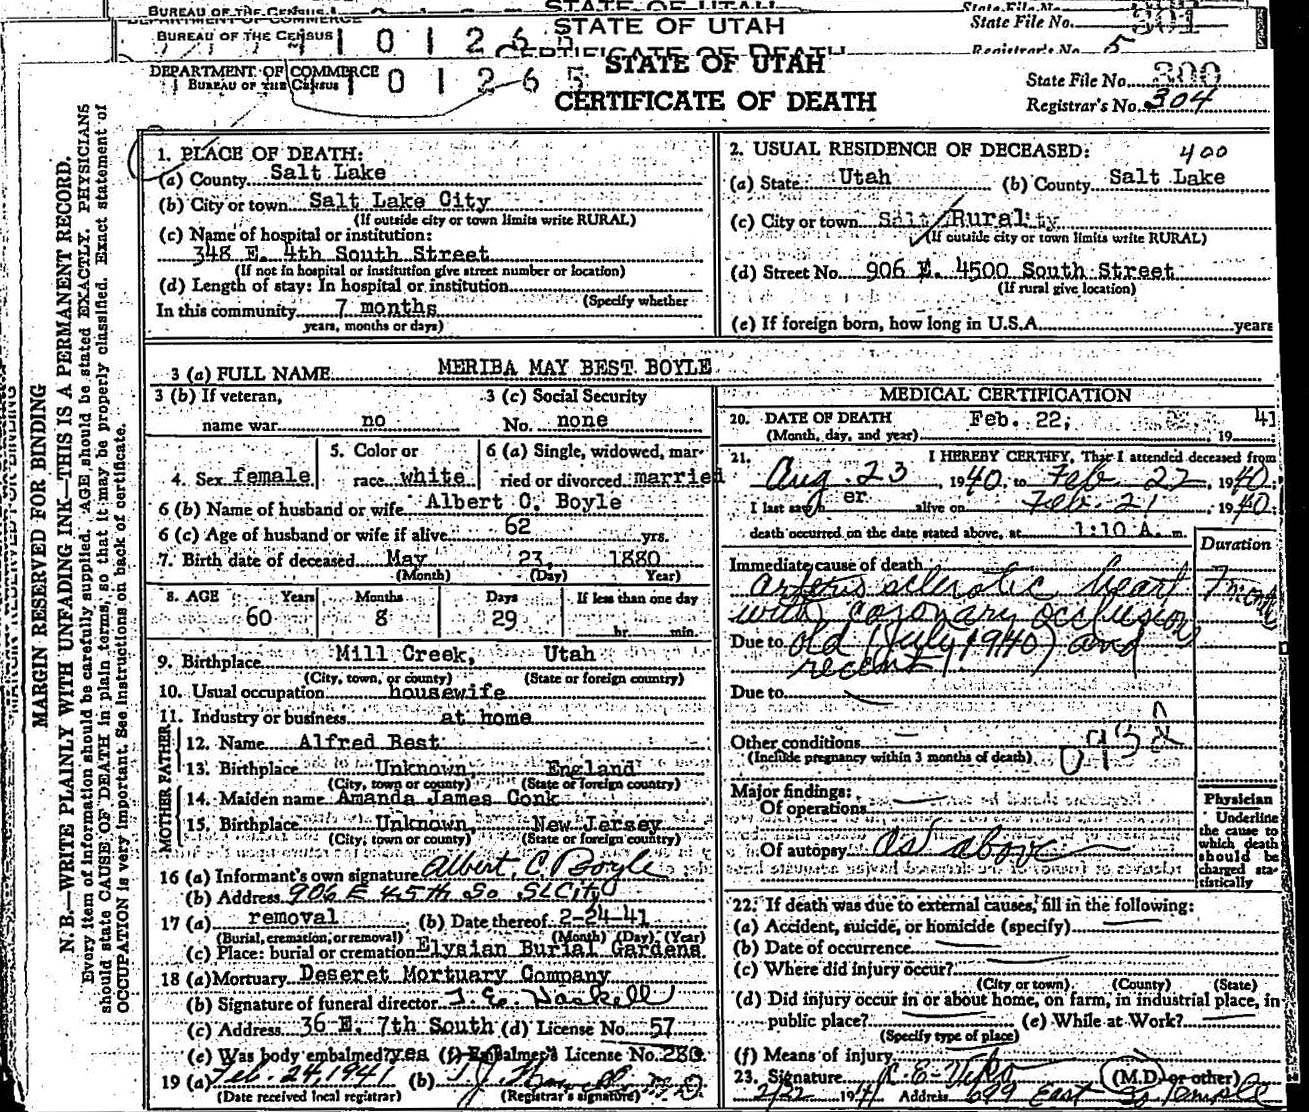 BUREAU OF THE CENSUS
STATE OF UTAH
State File No.
DEPARTMENT OF COMMERCE
BUREAU OF THE CENSUS
STATE OF UTAH
State File No. 301
CERTIFICATE OF DEATH
Registrar's No. 5
DEPARTMENT OF COMMERCE
BUREAU OF THE CENSUS
1 0 1 2 6 5
STATE OF UTAH
CERTIFICATE OF DEATH
State File No. 300
Registrar's No. 304
MARGIN RESERVED FOR BINDING
N. B.—WRITE PLAINLY WITH UNFADING INK—THIS IS A PERMANENT RECORD.
Every item of information should be carefully supplied. AGE should be stated EXACTLY. PHYSICIANS
should state CAUSE OF DEATH in plain terms, so that it may be properly classified. Exact statement of
OCCUPATION is very important. See instructions on back of certificate.
1. PLACE OF DEATH:
(a) County Salt Lake
(b) City or town Salt Lake City
(If outside city or town limits write RURAL)
(c) Name of hospital or institution:
348 E. 4th South Street
(If not in hospital or institution give street number or location)
(d) Length of stay: In hospital or institution
(Specify whether
In this community 7 months
years, months or days)
2. USUAL RESIDENCE OF DECEASED: 400
(a) State Utah (b) County Salt Lake
(c) City or town Salt Rural
(If outside city or town limits write RURAL)
(d) Street No. 906 E. 4500 South Street
(If rural give location)
(e) If foreign born, how long in U.S.A. years
3 (a) FULL NAME MERIBA MAY BEST BOYLE
3 (b) If veteran, name war no
3 (c) Social Security No. none
4. Sex female
5. Color or race white
6 (a) Single, widowed, married or divorced married
6 (b) Name of husband or wife Albert C. Boyle
6 (c) Age of husband or wife if alive 62 yrs.
7. Birth date of deceased May 23, 1880
(Month) (Day) Year)
8. AGE Years Months Days If less than one day
60 8 29 hr. min.
9. Birthplace Mill Creek, Utah
(City, town, or county) (State or foreign country)
10. Usual occupation housewife
11. Industry or business at home
FATHER
12. Name Alfred Best
13. Birthplace Unknown, England
(City, town or county) (State or foreign country)
MOTHER
14. Maiden name Amanda James Conk
15. Birthplace Unknown, New Jersey
(City, town or county) (State or foreign country)
16 (a) Informant's own signature Albert C. Boyle
(b) Address 906 E 45th So SLCity
17 (a) removal (b) Date thereof 2-24-41
(Burial, cremation, or removal) (Month) (Day) (Year)
(c) Place: burial or cremation Elysian Burial Gardens
18 (a) Mortuary Deseret Mortuary Company
(b) Signature of funeral director
(c) Address 36 E. 7th South (d) License No. 57
(e) Was body embalmed? yes (f) Embalmer's License No. 280
19 (a) Feb. 24, 1941 (b) M.D.
(Date received local registrar) (Registrar's signature)
MEDICAL CERTIFICATION
20. DATE OF DEATH Feb. 22, 41
(Month, day, and year) 19
21. I HEREBY CERTIFY, That I attended deceased from
Aug. 23 1940, to Feb 22, 1940.
I last saw her alive on Feb. 21 1940.
death occurred on the date stated above, at 1:10 A. m.
Duration
Immediate cause of death
arteriosclerotic heart
with coronary occlusion
Due to old (July 1940) and
recent
Due to
Other conditions
(Include pregnancy within 3 months of death)
Major findings:
Of operations
Of autopsy as above
Physician
Underline
the cause to
which death
should be
charged sta-
tistically
22. If death was due to external causes, fill in the following:
(a) Accident, suicide, or homicide (specify)
(b) Date of occurrence
(c) Where did injury occur?
(City or town) (County) (State)
(d) Did injury occur in or about home, on farm, in industrial place, in
public place? (e) While at Work?
(Specify type of place)
(f) Means of injury
23. Signature (M.D. or other)
2/22 1941 Address 699 East So Temple